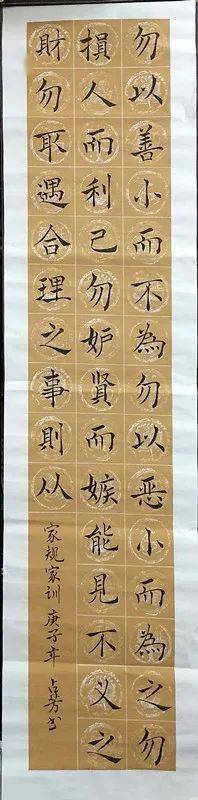 勿以善小而不為勿以恶小而為之勿
損人而利己勿妒贤而嫉能見不义之
財勿取遇合理之事則从
家规家训 庚子年 占芳书